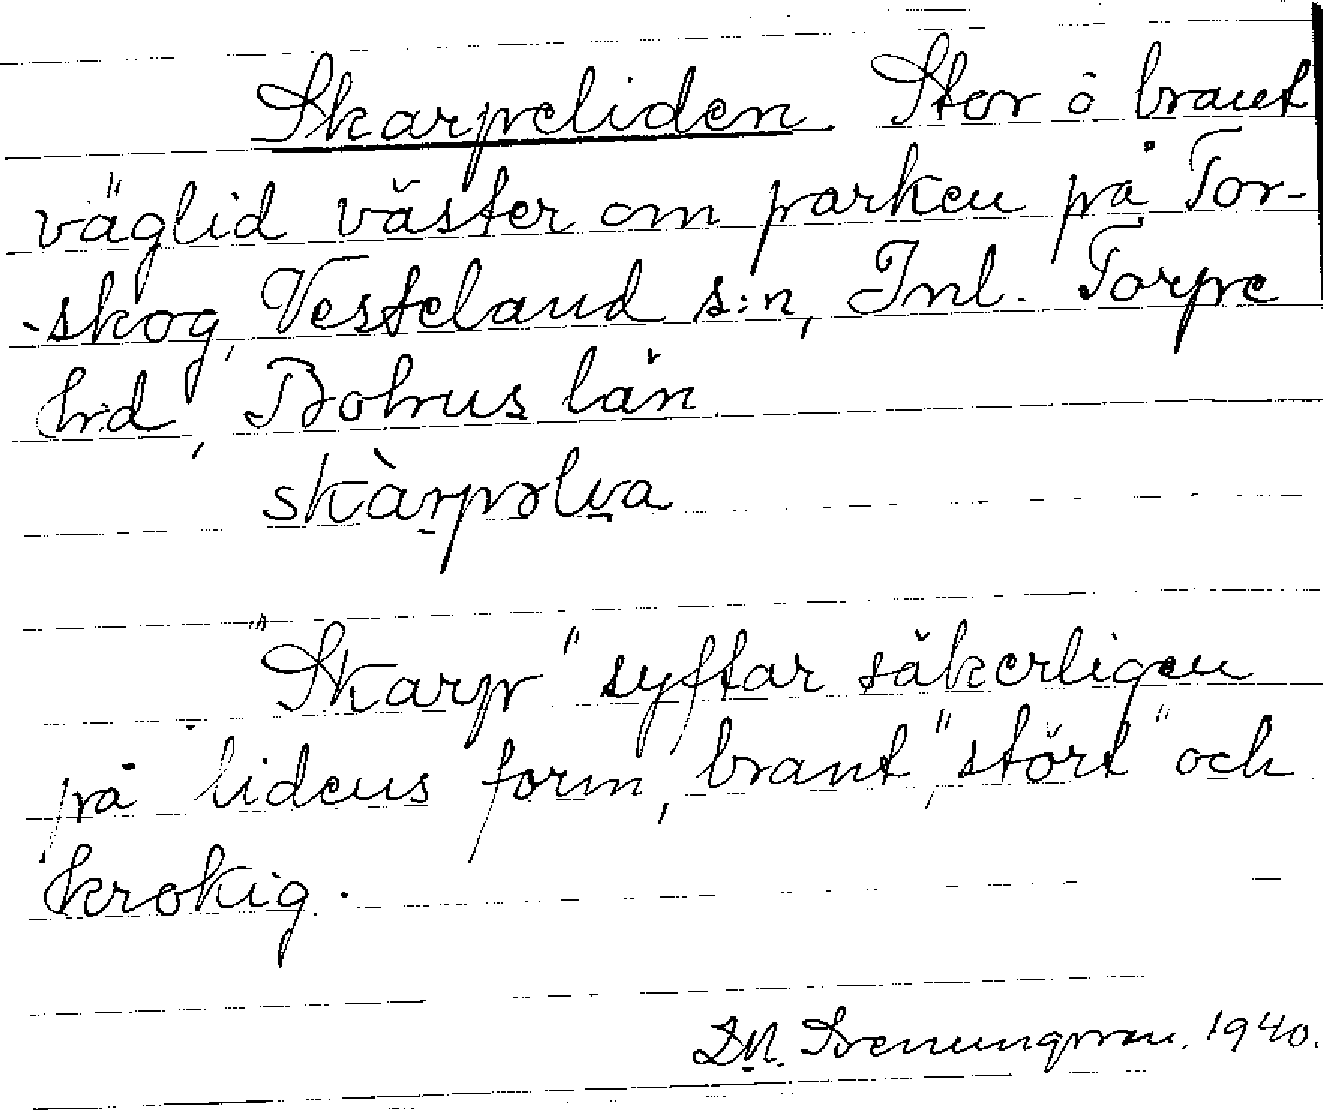 Skarpeliden. Stor o brant
väglid väster om parken på Tor-
-skog, Vesteland s:n, Inl. Torpe
hd, Bohus län.
skàrpəlua
"Skarp" syftar säkerligen
på lidens form, brant, "stört" och
krokig.
1940.